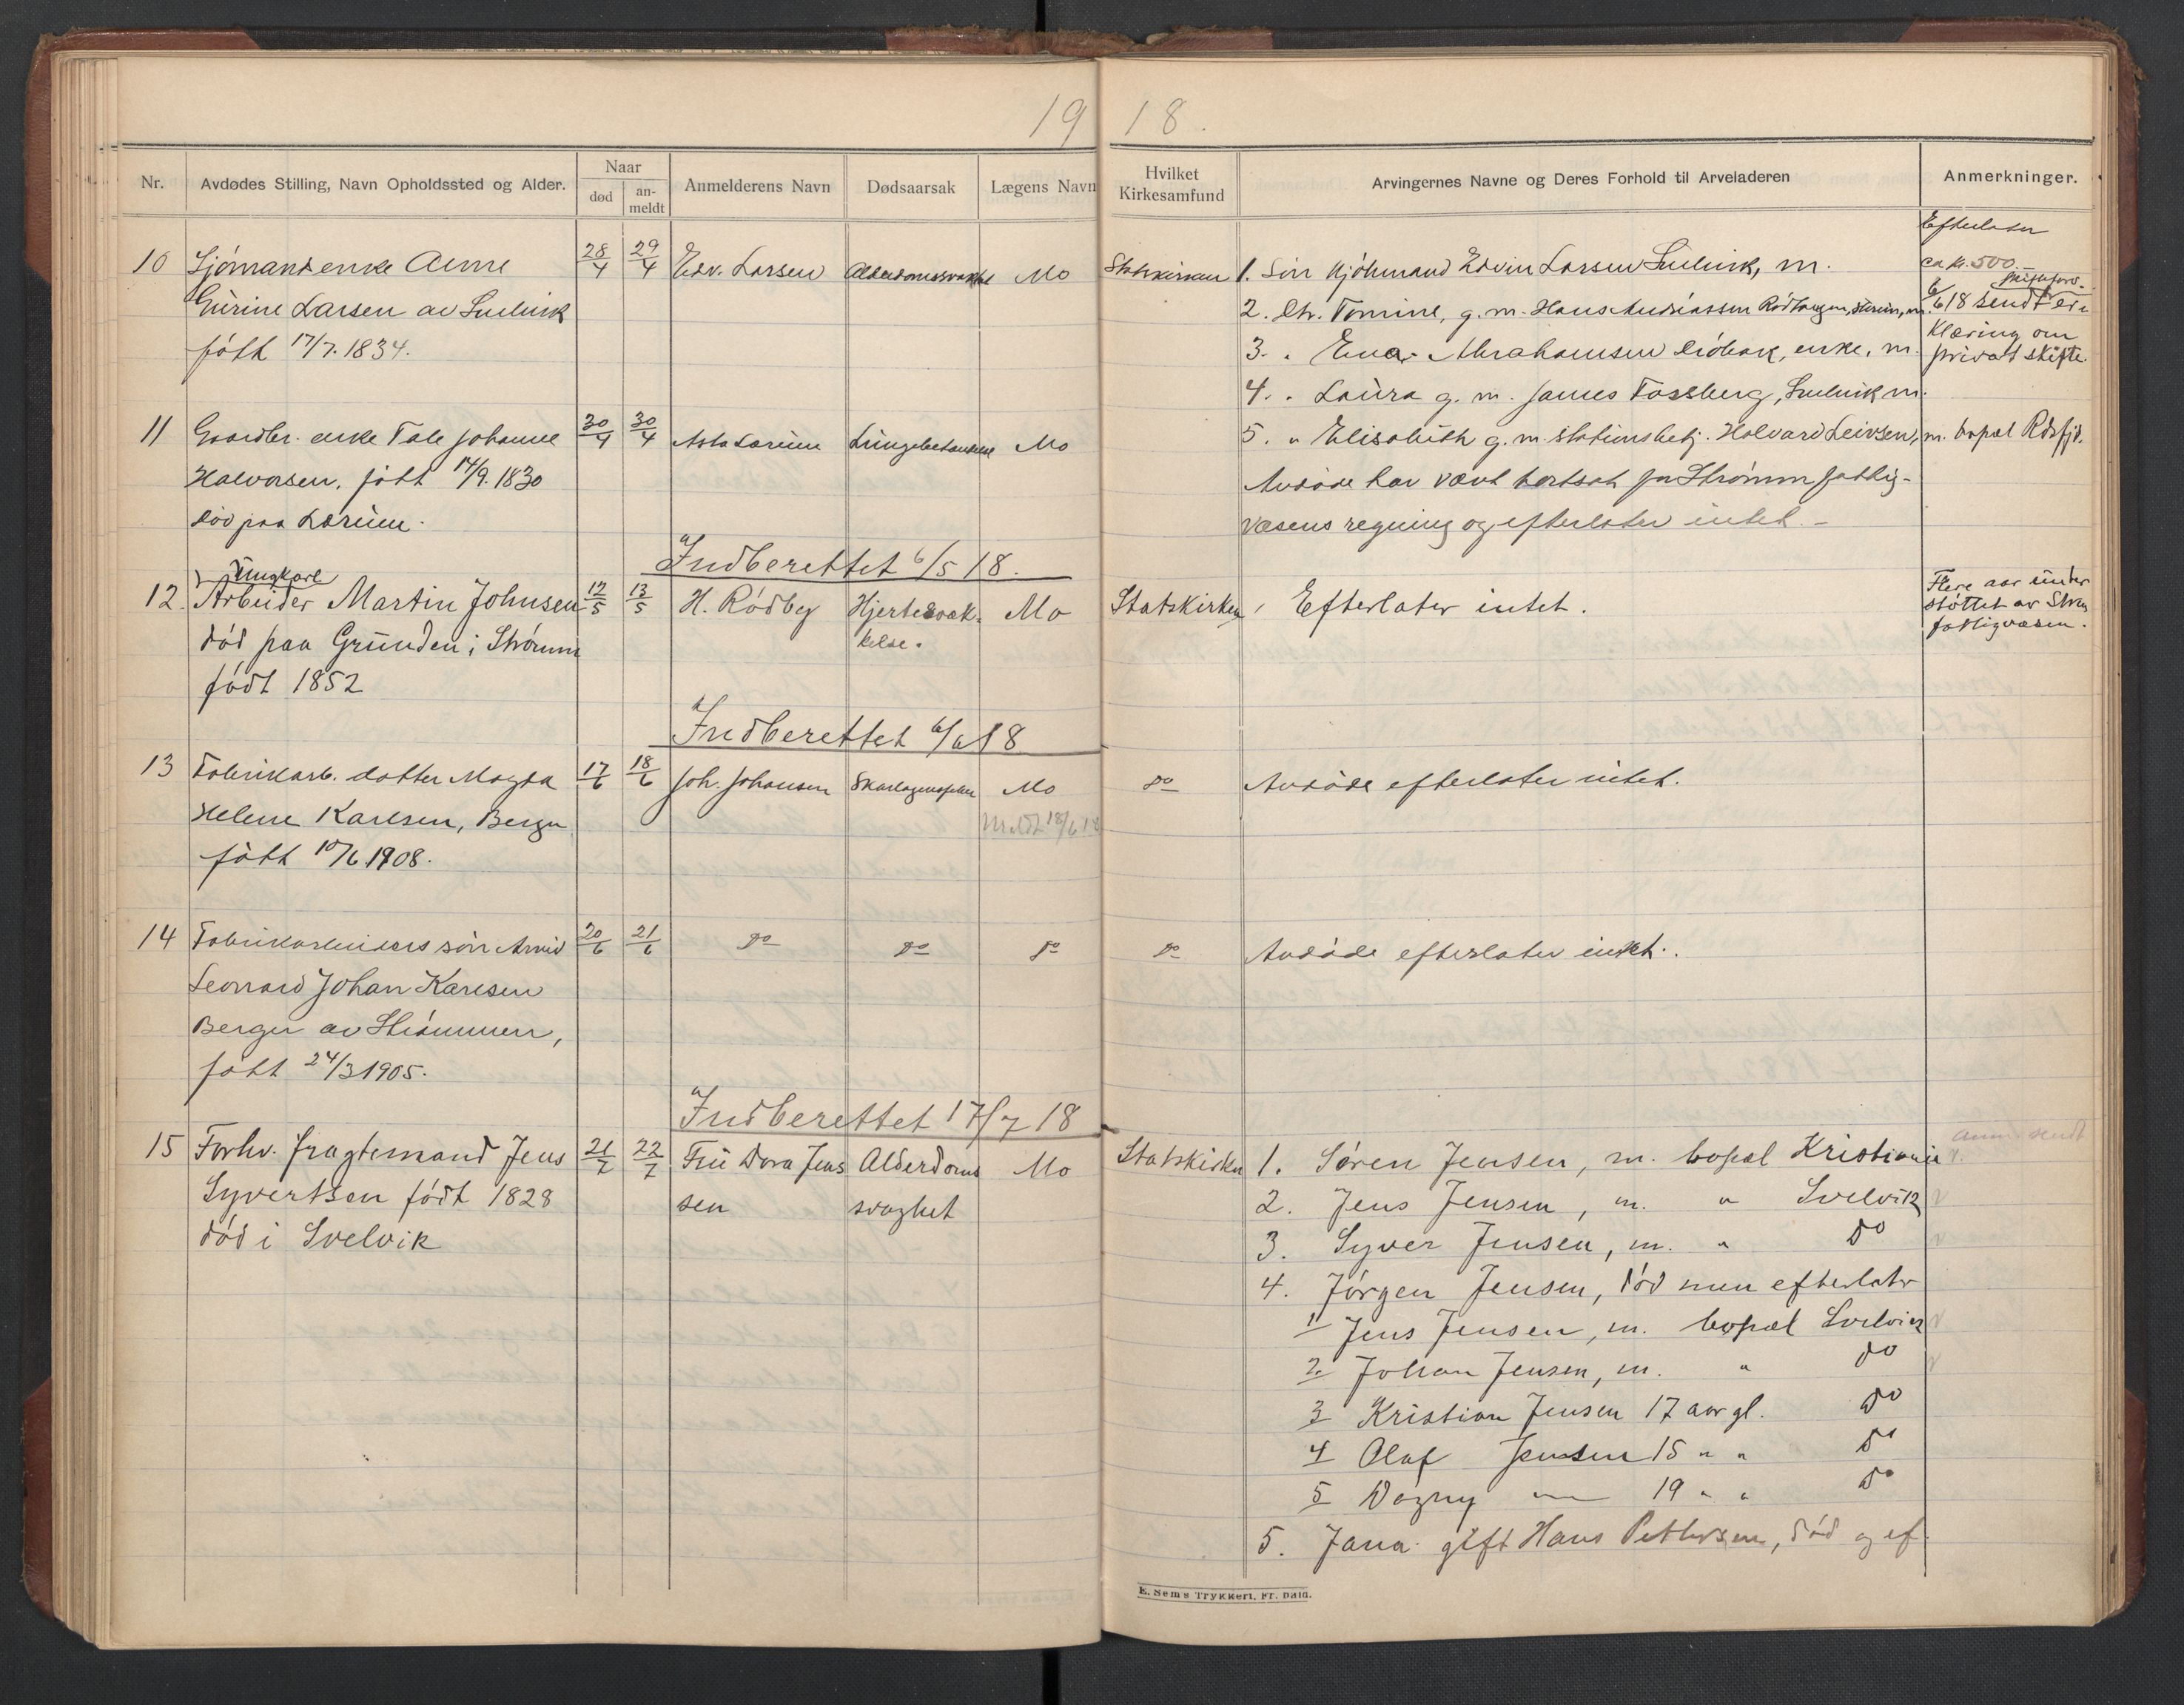 19 18.
Nr. Avdødes Stilling, Navn Opholdssted og Alder. Naar død an-meldt Anmelderens Navn Dødsaarsak Lægens Navn Hvilket Kirkesamfund Arvingernes Navne og Deres Forhold til Arveladeren Anmerkninger.
Efterlater
10 Sjömandsenke Anne 28/4 29/4 Edv. Larsen Alderdomssvakhet Mo Statskirken 1. Sön Edvin Larsen Svelvik, m. ca kr. 500.
Gurine Larsen av Svelvik 2. Dtr. Tomine, g. m. Hans Andreassen 6/6 18 sendt er-
född 17/7. 1834. 3. " Abrahamsen Dröbak, enke, m. klæring om
privat skifte.
4. " Laura g. m. James Fossberg, Svelvik m.
11 Gaardbr. enke Tale Johanne 30/4 30/4 Asta Larsen Lungebetændelse Mo 5. " Elisabeth g. m. stationsbetj. Halvard Leivsen, m. bopæl
Halvorsen. född 14/9. 1830 Avdöde har vært bortsat paa Strømm fattig-
död paa væsens regning og efterlater intet. –
Indberettet 6/5 18.
Ungkarl
12. Arbeider Martin Johnsen 12/5 13/5 H. Rödby Hjertesvæk- Mo Statskirken Efterlater intet. Flere aar under
kelse. støttet av Strøm
död paa Grunden i Strömm fattigvæsen.
födt 1852
Indberettet 6/6 18
13 Fabrikarb. datter Magda 17/6 18/6 Joh. Johansen Skarlagensfeber Mo do Avdöde efterlater intet.
Helene Karlsen, Berger Meldt 18/6 18
född 10/6 1908.
14 Fabrikarbeiders sön Arvid 20/6 21/6 do do do do Avdöde efterlater intet.
Leonard Johan Karlsen
Berger av Strömmen,
född 24/3 1905.
Indberettet 17/7 18
15 Forhv. fragtemand Jens 21/7 22/7 Fru Dora Jens Alderdoms Mo Statskirken 1. Søren Jensen, m. bopæl Kristiania
Syvertsen födt 1828 sen svaghet 2. Jens Jensen, m. " Svelvik
död i Svelvik 3. Syver Jensen, m. " do
4. Jörgen Jensen, död men efterlatr
1 Jens Jensen, m. bopæl Svelvik
2 Johan Jensen, m. " do
3 Kristian Jensen 17 aar gl. do
4 Olaf Jensen 15 " " do
5 Dagny — 19 " " do
5. Jana gift Hans Pettersen, död og ef.
E. Sems Trykkeri, Fr. hald.